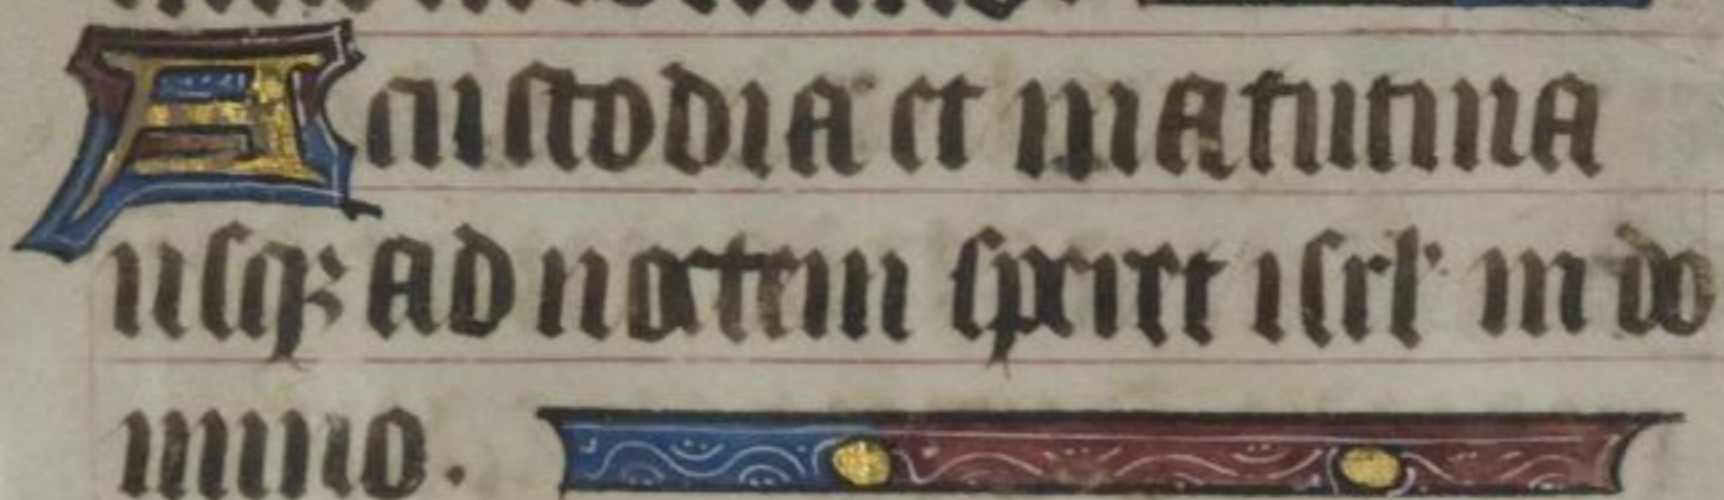 A custodia et matutina
usqꝫ ad noctem speret isrl' in do
mino.